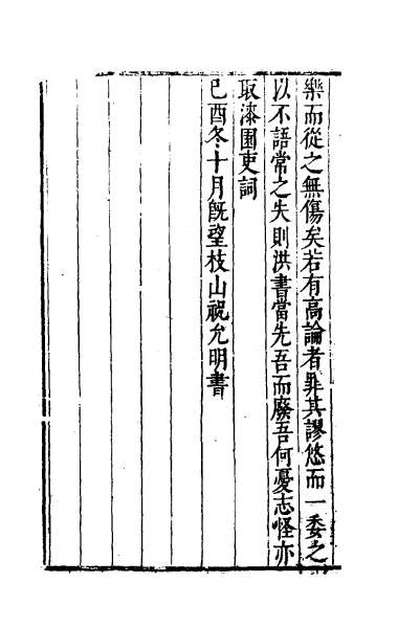 樂而從之無傷矣若有高論者罪其謬悠而一委之
以不語常之失則洪書當先吾而廢吾何憂志怪亦
取漆園吏詞
己酉冬十月旣望枝山祝允明書